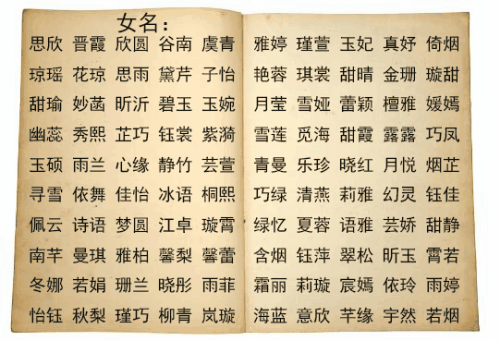 女名：
思欣 晋霞 欣圆 谷南 虞青
琼瑶 花琼 思雨 黛芹 子怡
甜瑜 妙菡 昕沂 碧玉 玉婉
幽蕊 秀熙 芷巧 钰裳 紫漪
玉硕 雨兰 心缘 静竹 芸萱
寻雪 依舞 佳怡 冰语 桐熙
佩云 诗语 梦圆 江卓 璇霄
南芊 曼琪 雅柏 馨梨 馨蕾
冬娜 若娟 珊兰 晓彤 雨菲
怡钰 秋梨 瑾巧 柳青 岚璇
雅婷 瑾萱 玉妃 真妤 倚烟
艳蓉 琪裳 甜晴 金珊 璇甜
月莹 雪娅 蕾颖 檀雅 媛嫣
雪莲 觅海 甜霞 露露 巧凤
青曼 乐珍 晓红 月悦 烟芷
巧绿 清燕 莉雅 幻灵 钰佳
绿忆 夏蓉 语雅 芸娇 甜静
含烟 钰萍 翠松 昕玉 霄若
霜丽 莉璇 宸嫣 依玲 雨婷
海蓝 意欣 芊缘 宇然 若烟